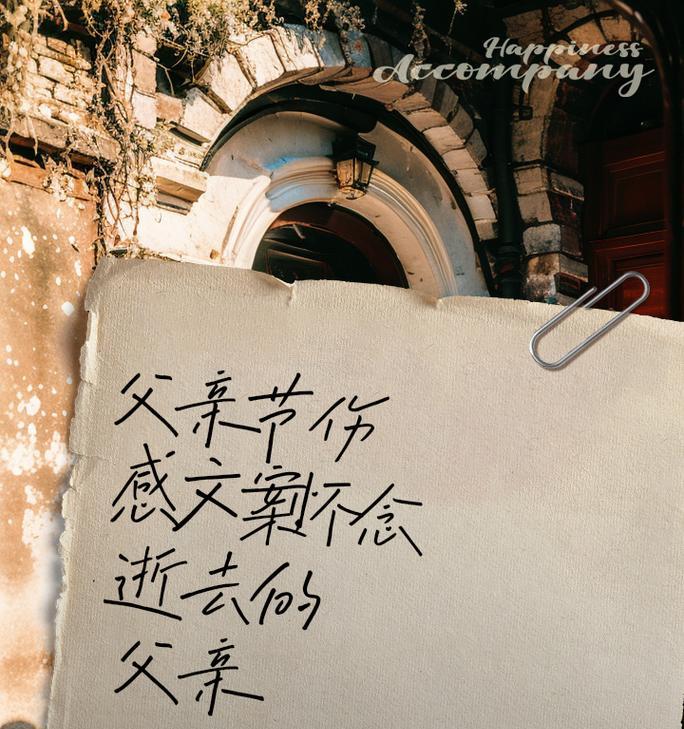 Happiness
Accompany
父亲节伤
感文案怀念
逝去的
父亲